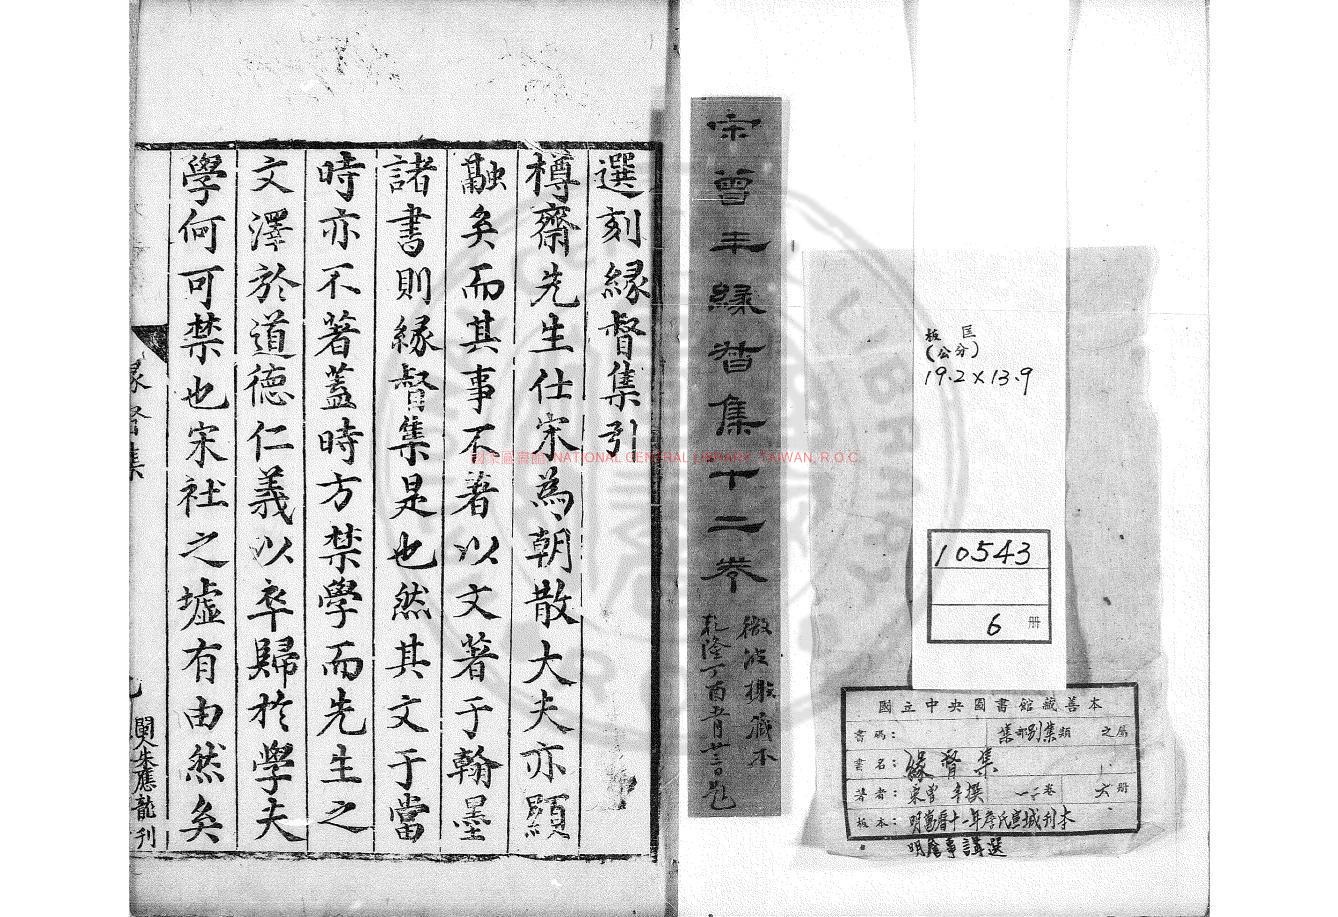 國立中央圖書館藏善本
書碼：
集部別集類 之屬
書名：緣督集
著者：宋曾丰撰 十二卷 六冊
板本：明萬曆十一年詹氏宣城刊本
明詹事講選
10543
6 冊
板匡
(公分)
19.2×13.9
宋曾丰緣督集十二卷
微波榭藏本
乾隆丁酉五月廿三日題
選刻緣督集引
樽齋先生仕宋為朝散大夫亦顯
融矣而其事不著以文著于翰墨
諸書則緣督集是也然其文于當
時亦不著蓋時方禁學而先生之
文澤於道德仁義以卒歸於學夫
學何可禁也宋社之墟有由然矣
緣督集
閩人朱應龍刊
國家圖書館 NATIONAL CENTRAL LIBRARY, TAIWAN, R.O.C